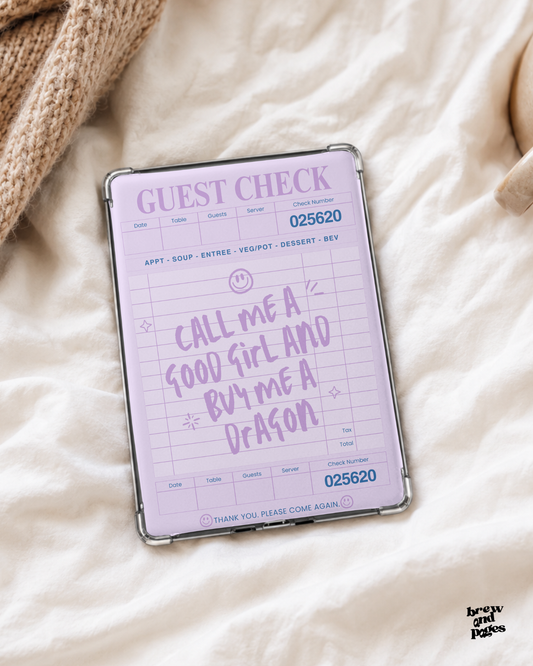 GUEST CHECK
Date Table Guests Server Check Number
025620
APPT - SOUP - ENTREE - VEG/POT - DESSERT - BEV
CALL ME A
GOOD GirL AND
BUY ME A
DrAGON
Tax
Total
Date Table Guests Server Check Number
025620
THANK YOU. PLEASE COME AGAIN.
brew
and
pages